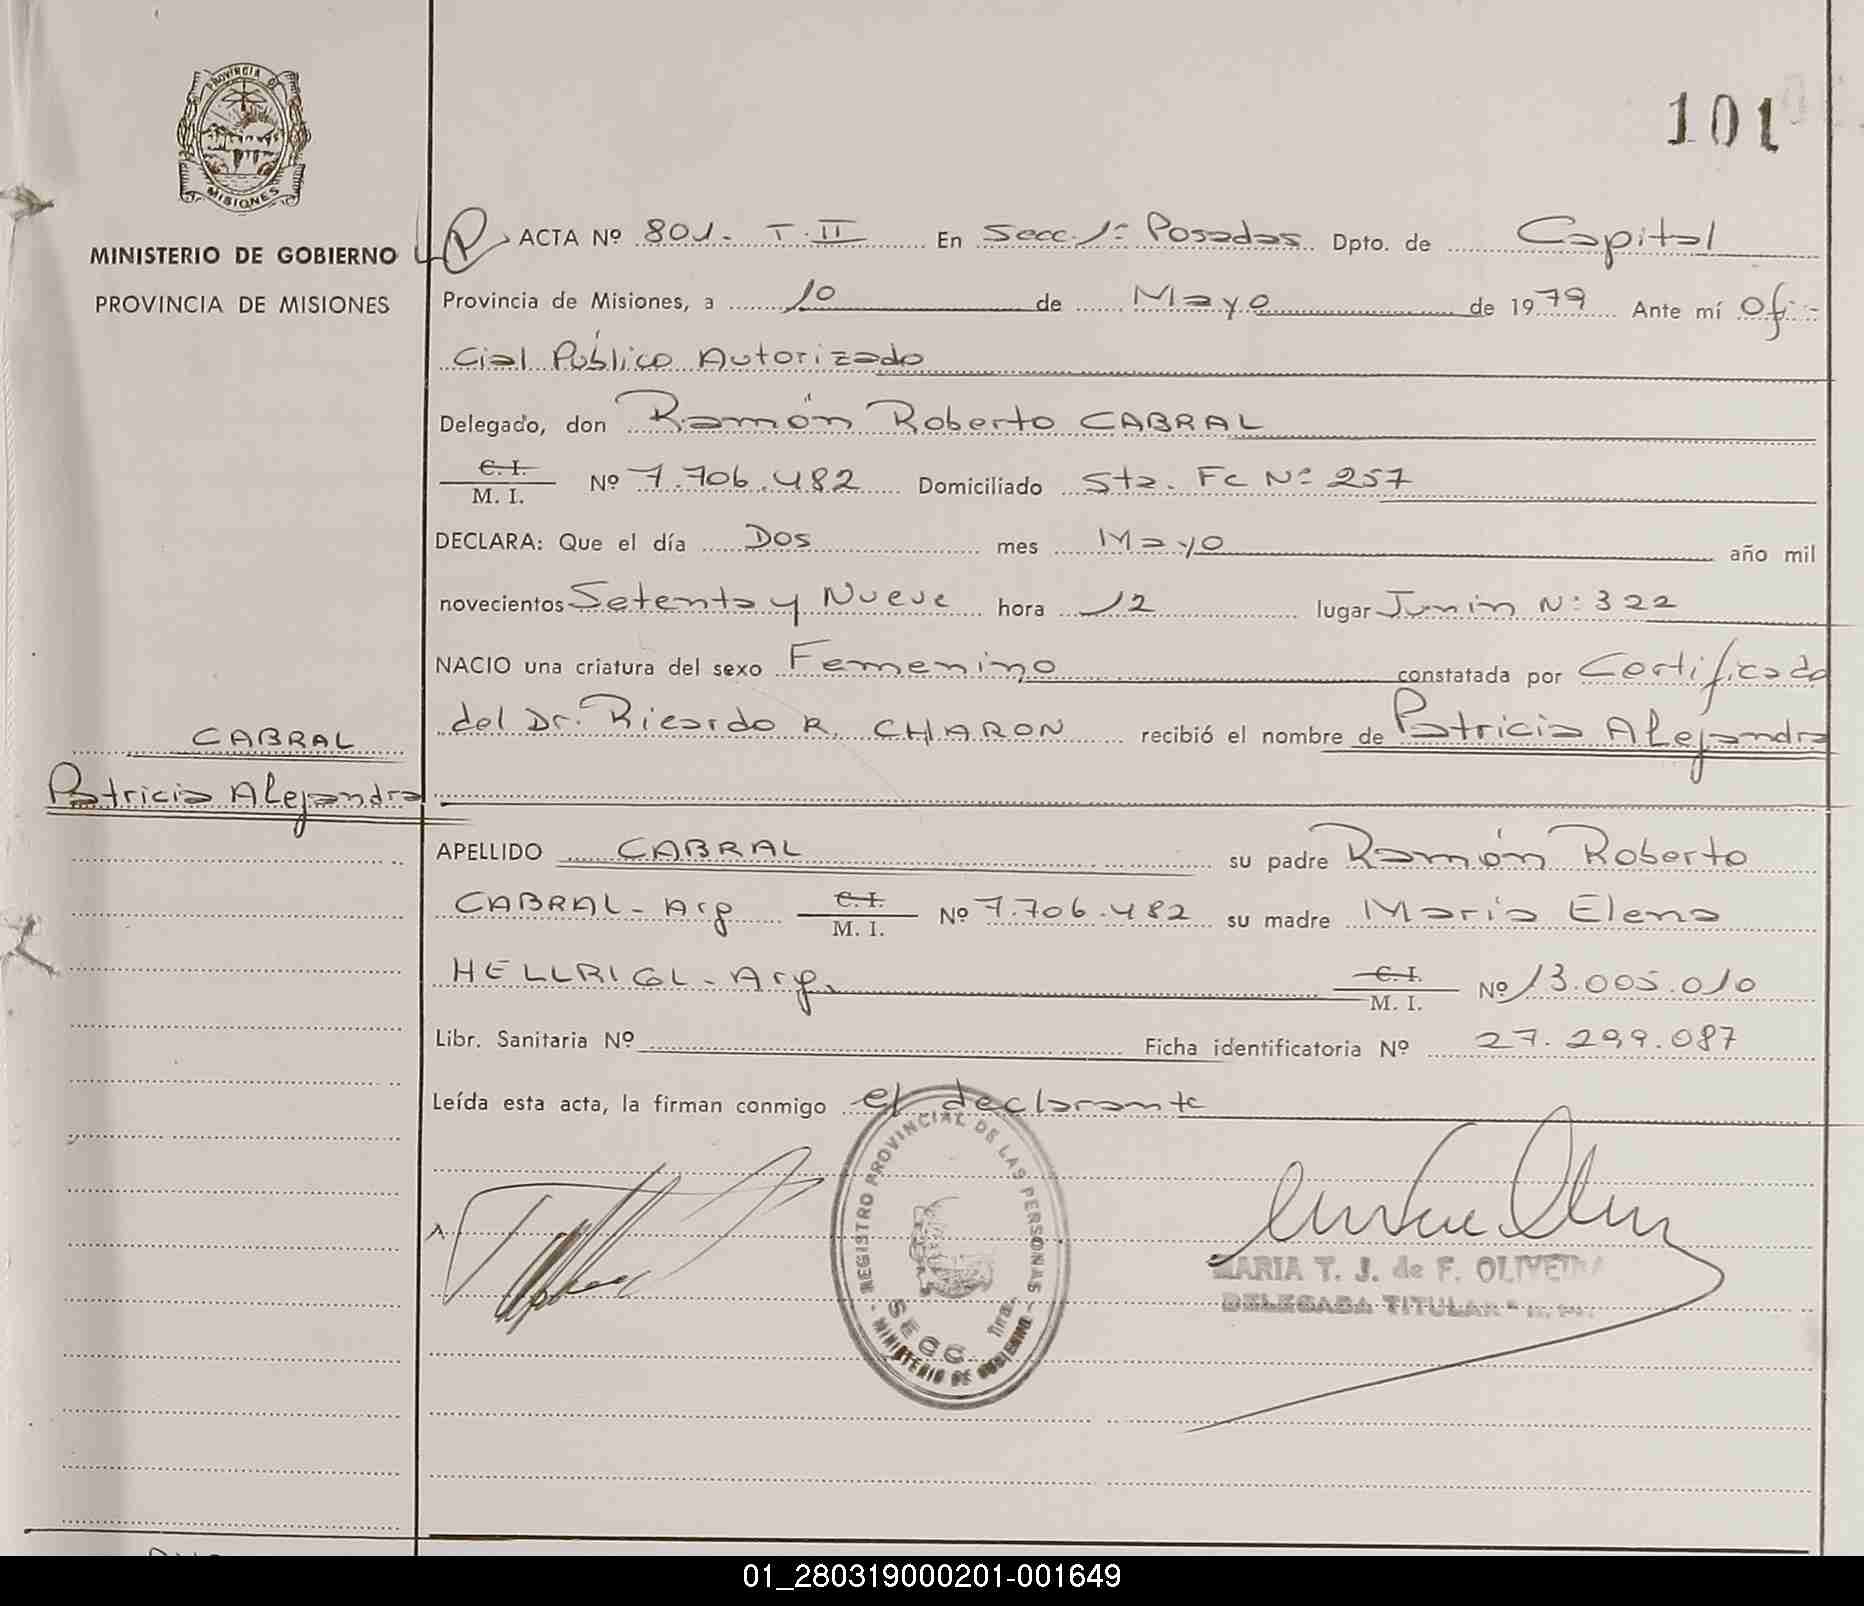 101
PROVINCIA DE
MISIONES
MINISTERIO DE GOBIERNO
PROVINCIA DE MISIONES
ACTA Nº 801. T. II En Secc. 1ª Posadas Dpto. de Capital
Provincia de Misiones, a 10 de Mayo de 1979 Ante mí Ofi-
cial Público Autorizado
Delegado, don Ramón Roberto CABRAL
C. I.
M. I. Nº 7.706.482 Domiciliado Sta. Fe Nº 257
DECLARA: Que el día Dos mes Mayo año mil
novecientos Setenta y Nueve hora 12 lugar Junin Nº 322
NACIO una criatura del sexo Femenino constatada por Certificado
del Dr. Ricardo R. CHARON recibió el nombre de Patricia Alejandra
CABRAL
Patricia Alejandra
APELLIDO CABRAL su padre Ramón Roberto
CABRAL - Arg C. I.
M. I. Nº 7.706.482 su madre María Elena
HELLRIGL - Arg. C. I.
M. I. Nº 13.005.010
Libr. Sanitaria Nº Ficha identificatoria Nº 27.299.087
Leída esta acta, la firman conmigo el declarante
REGISTRO PROVINCIAL DE LAS PERSONAS
SECC. 1ra.
MINISTERIO DE GOBIERNO
MARIA T. J. de F. OLIVEIRA
DELEGADA TITULAR
01_280319000201-001649